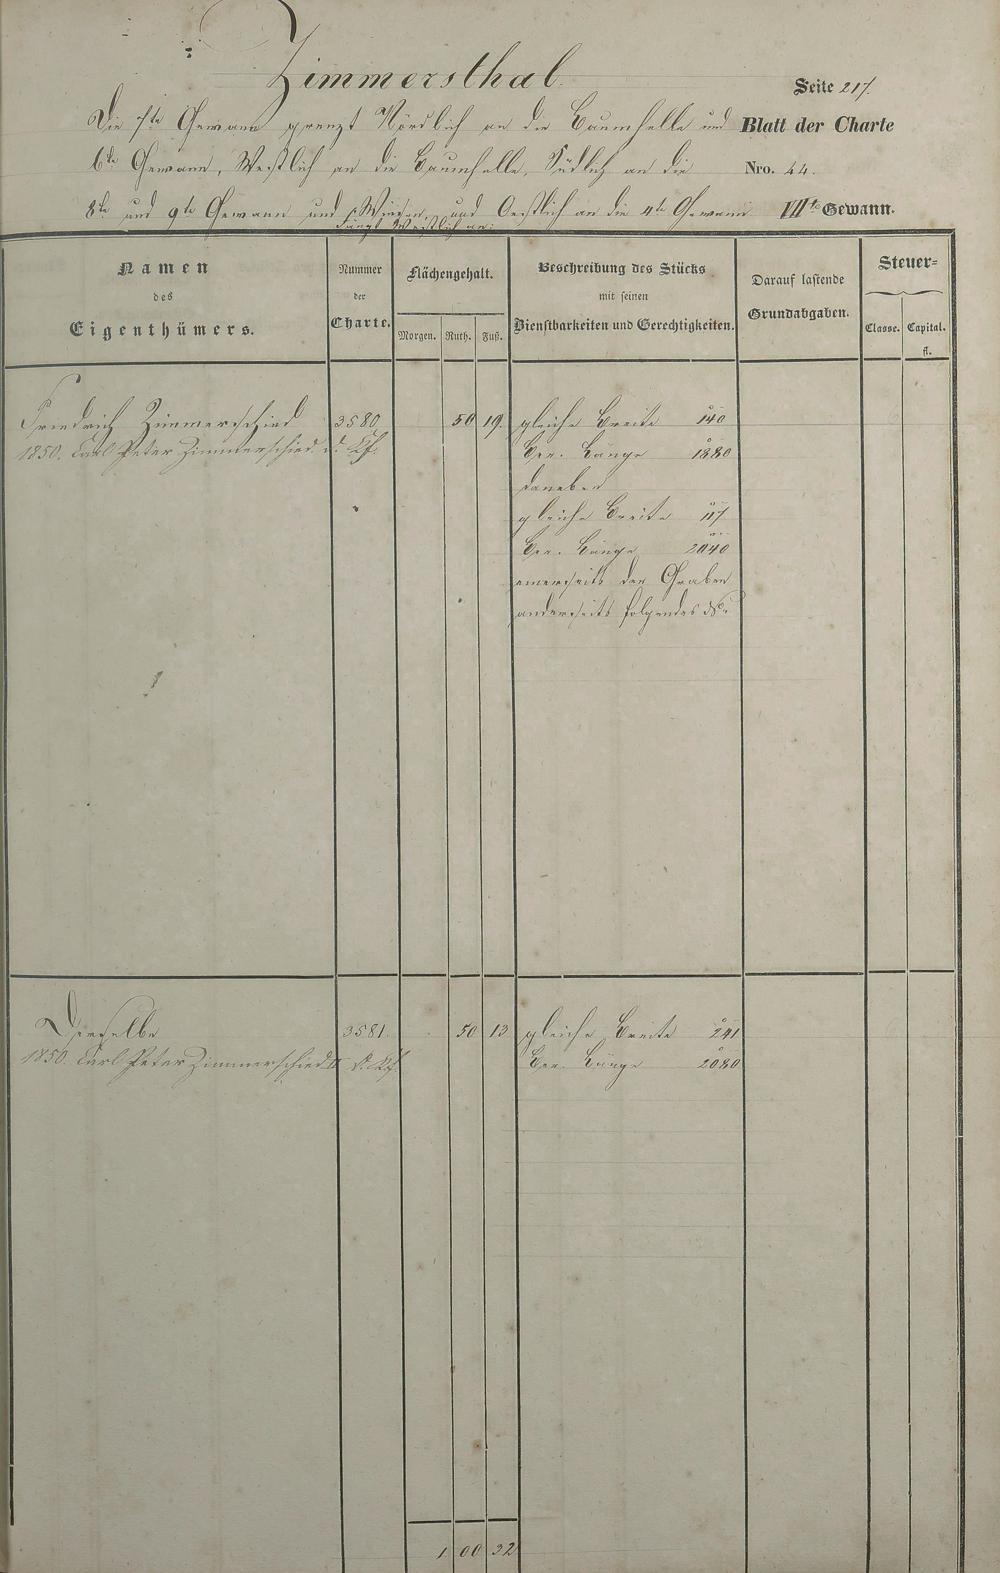 Zimmersthal.
Seite 217.
Die 7te Gewann grenzt Nördlich an die Baumhelle und
Blatt der Charte
6te Gewann, Westlich an die Baumhelle, Südlich an die
Nro. 44.
8te und 9te Gewann und Wiesen, und Oestlich an die 4te Gewann
VIIte Gewann.
Fängt Westlich an:
Namen des Eigenthümers.
Nummer der Charte.
Flächengehalt.
Morgen. Ruth. Fuß.
Beschreibung des Stücks mit seinen Dienstbarkeiten und Gerechtigkeiten.
Darauf lastende Grundabgaben.
Steuer=
Classe. Capital. fl.
Friedrich Zimmerschied 3580 50 19. gleiche Breite 140
1850. Carl Peter Zimmerschied d. Kf. Ber. Länge 1880
daneben
gleiche Breite 117
Ber. Länge 2040
einerseits der Graben
anderseits folgendes
Derselbe 3581. 50 13 gleiche Breite 241
1850. Carl Peter Zimmerschied II Ber. Länge 2080
1 00 32